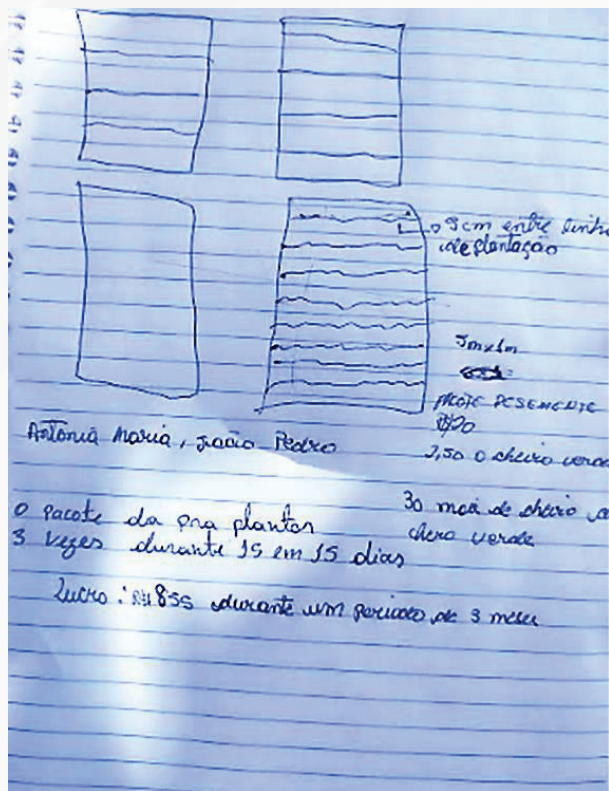 9cm entre linha
de plantação
5m x 1m
PACOTE DE SEMENTE
R$20
2,50 o cheiro verde
Antônia Maria, João Pedro
30 de cheiro
chero verde
O Pacote da pra plantar
3 vezes durante 15 em 15 dias
Lucro: R$ 855 durante um periodo de 3 meses